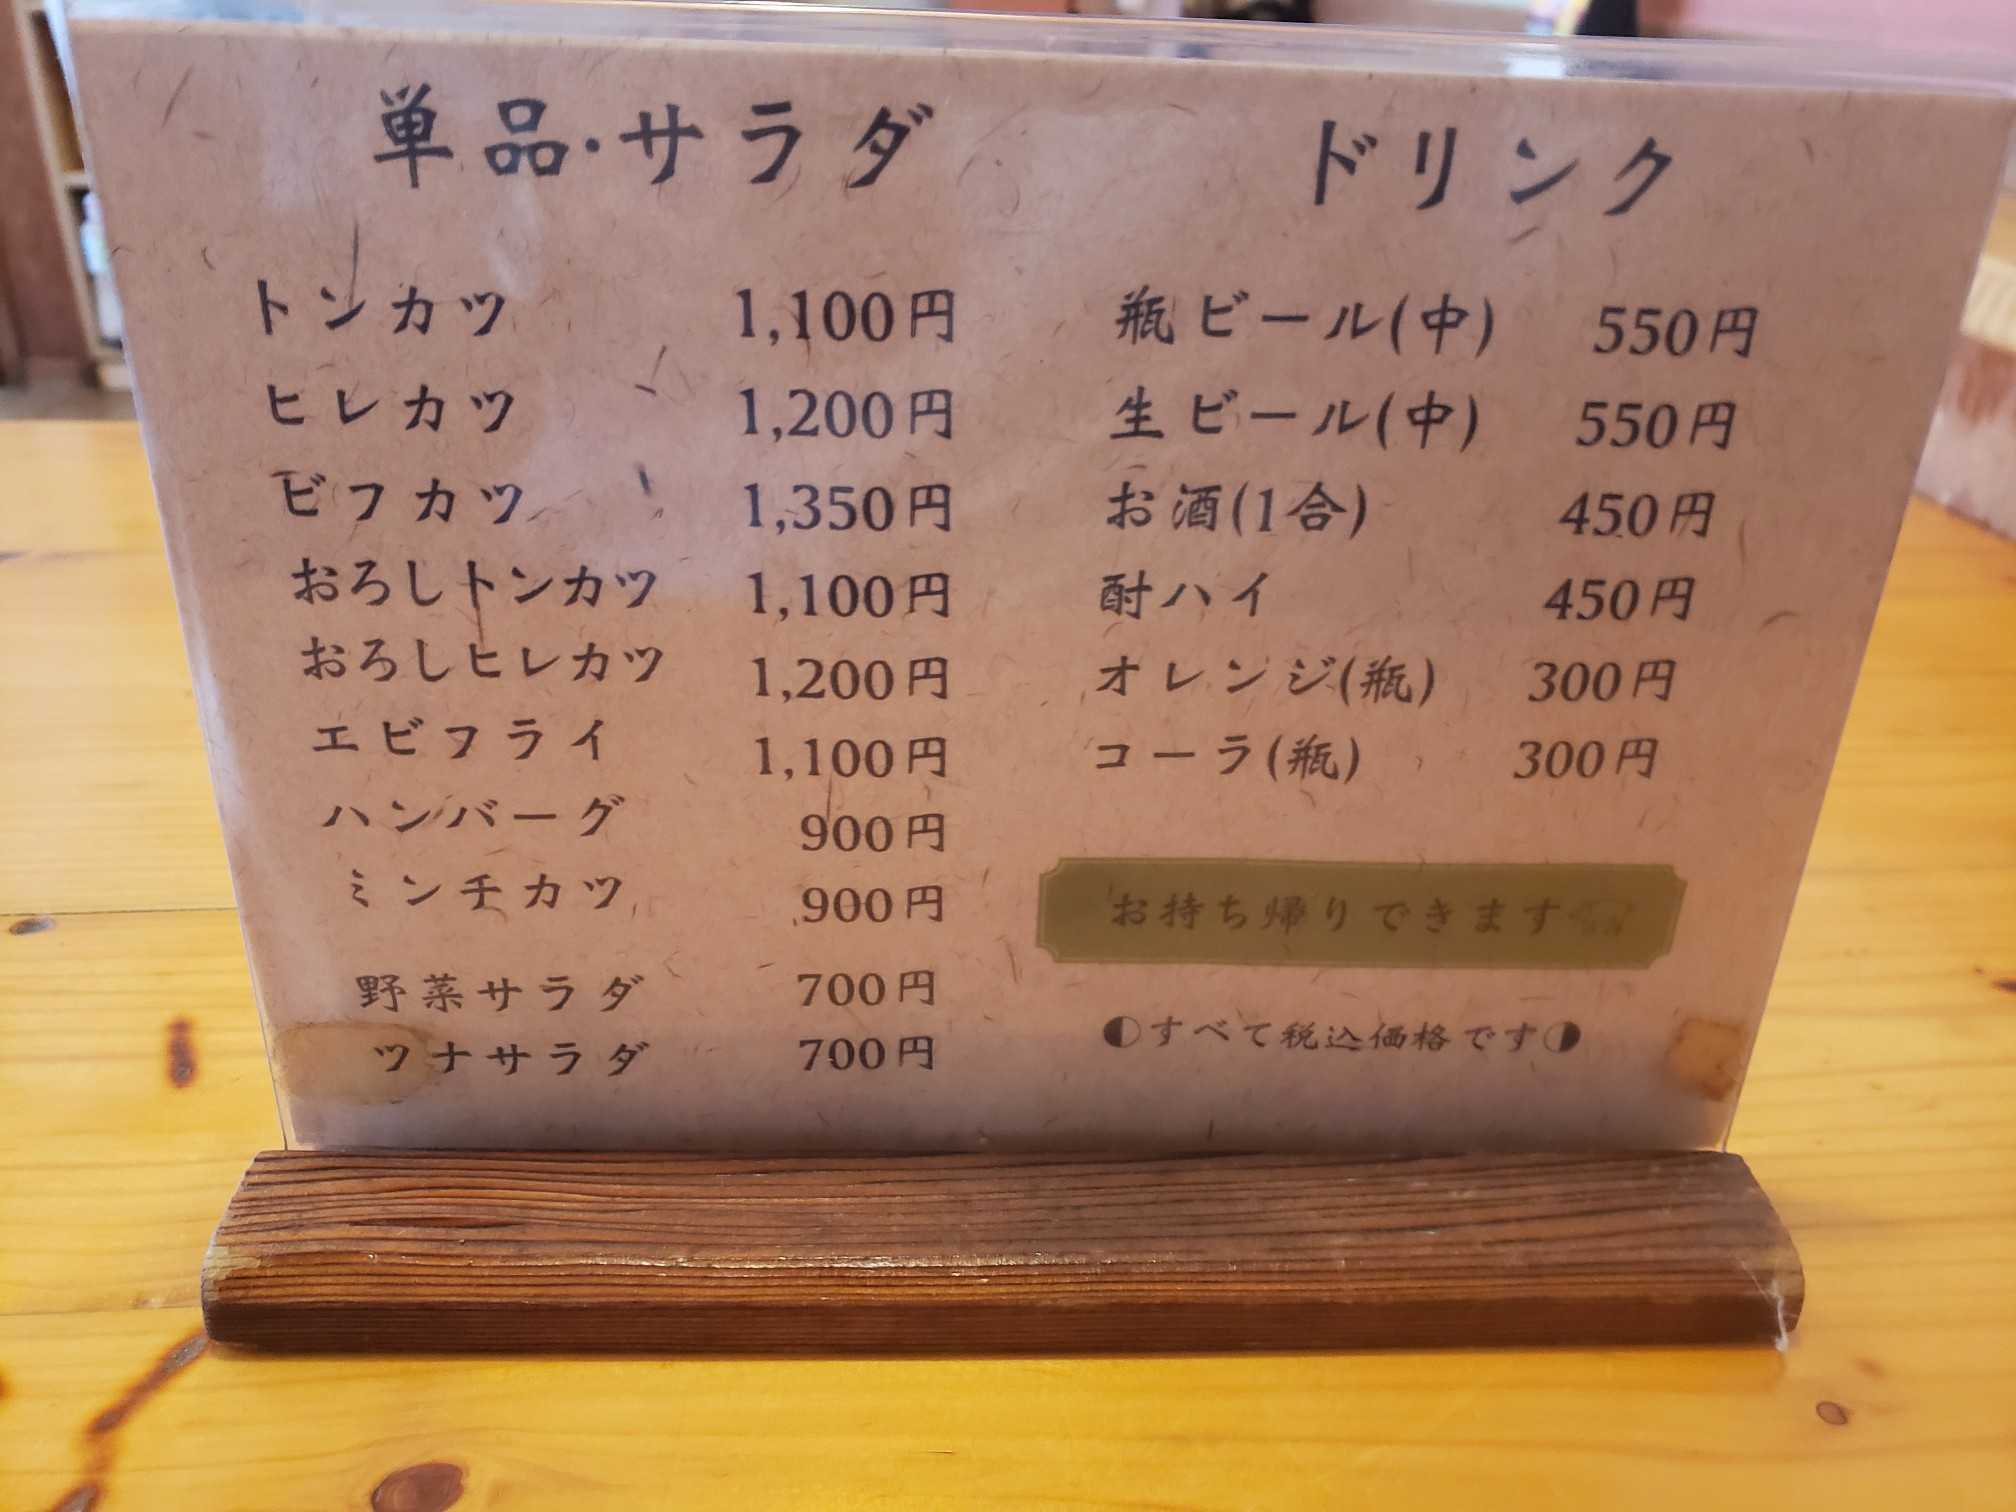 単品・サラダ
トンカツ 1,100円
ヒレカツ 1,200円
ビフカツ 1,350円
おろしトンカツ 1,100円
おろしヒレカツ 1,200円
エビフライ 1,100円
ハンバーグ 900円
ミンチカツ 900円
野菜サラダ 700円
ツナサラダ 700円
ドリンク
瓶ビール(中) 550円
生ビール(中) 550円
お酒(1合) 450円
酎ハイ 450円
オレンジ(瓶) 300円
コーラ(瓶) 300円
お持ち帰りできます
◐すべて税込価格です◑